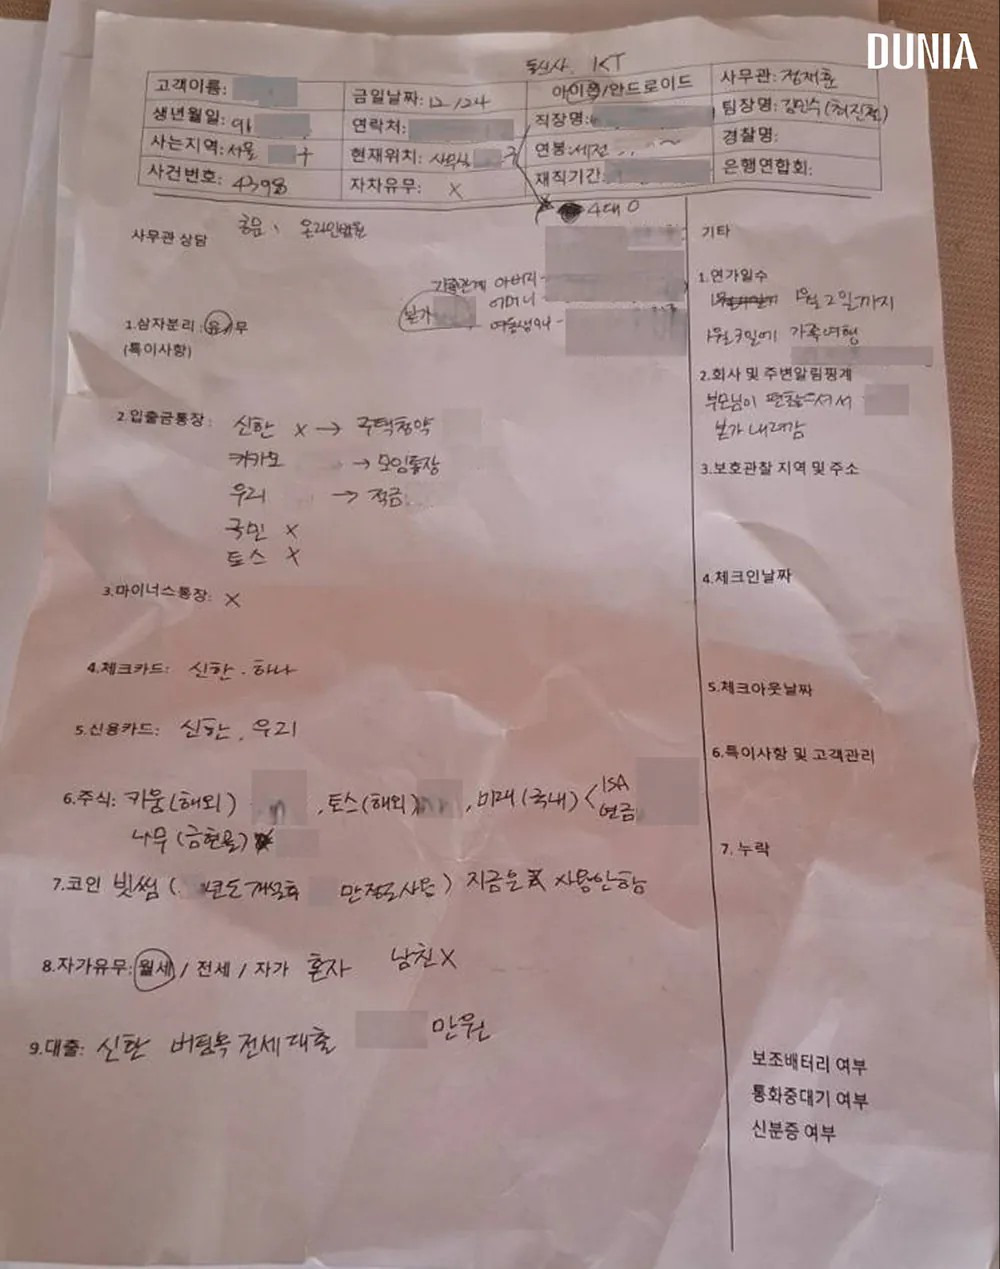 DUNIA
통신사. KT
고객이름:
금일날짜: 12/24
아이폰/안드로이드
사무관: 정재훈
생년월일: 91
연락처:
직장명:
팀장명: 김민수(최진철)
사는지역: 서울 구
현재위치: 사무실 구
연봉: 세전 ~
경찰명:
사건번호: 4398
자차유무: X
재직기간:
은행연합회:
4대 O
사무관 상담
온라인법원
가족관계 아버지-
본가
어머니-
여동생
1.삼자분리 : 유/무
(특이사항)
2.입출금통장: 신한 X → 주택청약
카카오 → 모임통장
우리 → 적금
국민 X
토스 X
3.마이너스통장: X
4.체크카드: 신한. 하나
5.신용카드: 신한, 우리
6.주식: 키움(해외) , 토스(해외) , 미래(국내) < ISA
연금
나무(금현물)
7.코인 빗썸 ( 년도 개설후 만정도사용 ) 지금은 사용안함
8.자가유무: 월세 / 전세 / 자가 혼자 남친X
9.대출: 신한 버팀목 전세대출 만원
기타
1.연가일수
1월 2일까지
1월 3일에 가족여행
2.회사 및 주변알림핑계
부모님이 편찮으셔서
본가 내려감
3.보호관찰 지역 및 주소
4.체크인날짜
5.체크아웃날짜
6.특이사항 및 고객관리
7. 누락
보조배터리 여부
통화중대기 여부
신분증 여부